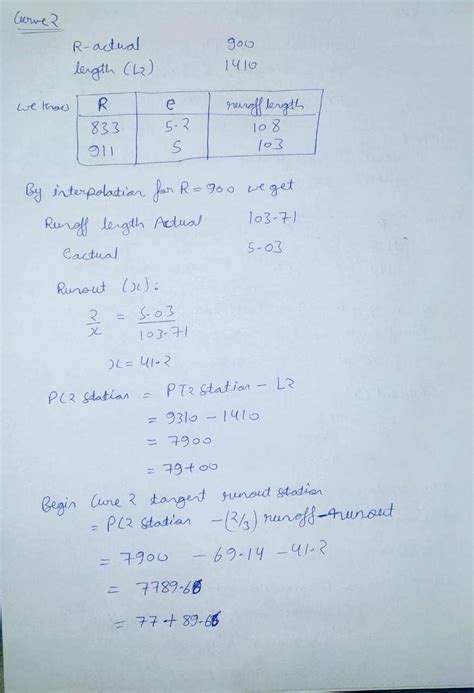 Curve 2
R-actual 900
length (L2) 1410
we know
R e runoff length
833 5.2 108
911 5 103
By interpolation for R = 900 we get
Runoff length Actual 103.71
Eactual 5.03
Runout (x):
2/x = 5.03/103.71
x = 41.2
PC2 station = PT2 station - L2
= 9310 - 1410
= 7900
= 79+00
Begin Curve 2 tangent runout station
= PC2 station - (2/3) runoff - runout
= 7900 - 69.14 - 41.2
= 7789.66
= 77 + 89.66